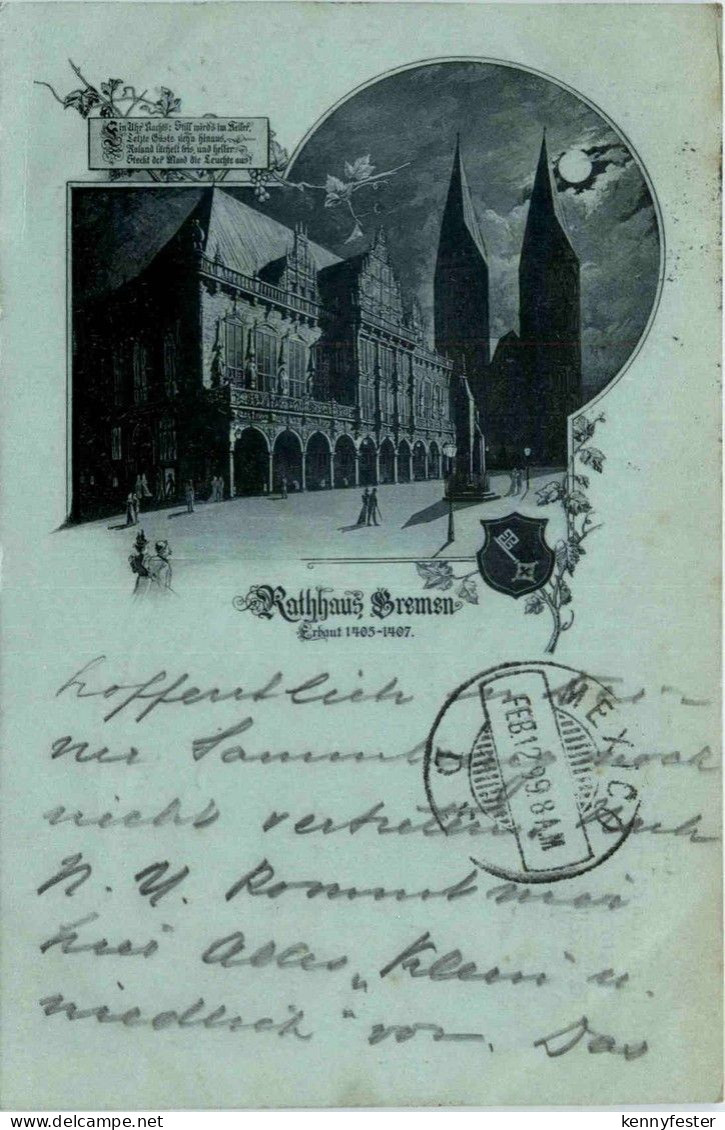 Ein Uhr Nachts: Still wird's im Keller,
Letzte Gäste zieh'n hinaus,
Roland lächelt bis, und heller
Steckt der Mond die Leuchte aus!
Rathhaus Bremen
Erbaut 1405-1407.
MEXICO
FEB 12 99 8 AM
D
hoffentlich in Dei-
ner Sammlung noch
nicht vertreten. Nach
N. Y. kommt mir
hier Alles „Klein u.
niedlich" vor. Das
kennyfester